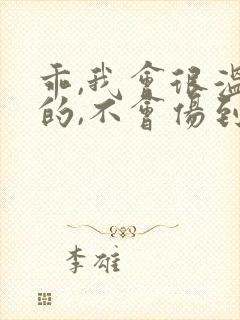 乖,我會很溫
的,不會傷到
李雄